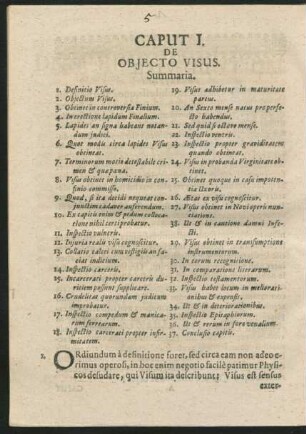 5
CAPUT I.
DE
OBJECTO VISUS.
Summaria.
1. Definitio Visus.
2. Objectum Visus.
3. Obtinet in controversia Finium.
4. In rectione lapidum Finalium.
5. Lapides an signa habeant notanda
dum judici.
6. Quot modis circa lapides Visus
obtineat.
7. Terminorum motio detestabile crimen
& quæ pœna.
8. Visus obtinet in homicidio in confinio
commisso.
9. Quod, si ita decidi nequeat communitim
cadaver auferendum.
10. Ex capitis enim & pedum collocatione
nihil certi probatur.
11. Inspectio vulneris.
12. Injuria realis visu cognoscitur.
13. Collatio calcei cum vestigiis an faciat
indicium.
14. Inspectio carceris.
15. Incarcerati propter carceris duritiem
possunt supplicare.
16. Crudelitas quorundam judicum
improbatur.
17. Inspectio compedum & manicarum
ferrearum.
18. Inspectio carcerati propter infirmitatem.
19. Visus adhibetur in maturitate
partus.
20. An Sexto mense natus pro perfecto
habendus.
21. Sed quid si octavo mense.
22. Inspectio ventris.
23. Inspectio propter graviditatem
quando obtineat.
24. Visus in probanda Virginitate obtinet.
25. Obtinet quoque in casu impotentia
Uxoris.
26. Ætas ex visu cognoscitur.
27. Visus obtinet in Novi operis nunciatione.
28. Ut & in cautione damni Infecti.
29. Visus obtinet in transumptione
instrumentorum.
30. In eorum recognitione.
31. In comparatione literarum.
32. Inspectio testamentorum.
33. Visus habet locum in meliorationibus
& expensis.
34. Ut & in deteriorationibus.
35. Inspectio Epitaphiorum.
36. Ut & rerum in foro venalium
37. Conclusio capitis.
1. ORdiundum à definitione foret, sed circa eam non adeo erimus
operosi, in hoc enim negotio facilè patimur Physicos
desudare, qui Visum ita describunt; Visus est sensus
exter-